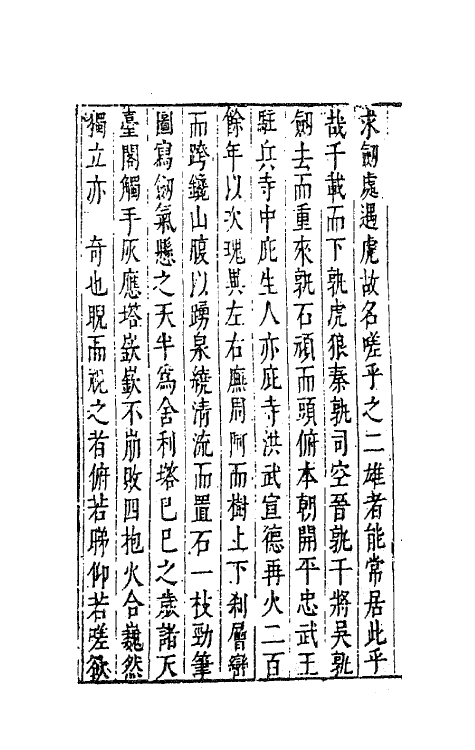 求劒處遇虎故名嗟乎之二雄者能常居此乎
哉千載而下孰虎狼秦孰司空晉孰干將吳孰
劒去而重來孰石頑而頭俯本朝開平忠武王
駐兵寺中庇生人亦庇寺洪武宣德再火二百
餘年以次瑰異左右廡周阿而樹上下刹層巒
而跨鏡山腹以踴泉繞清流而置石一枝勁筆
圖寫劒氣懸之天半爲舍利塔巳巳之歳諸天
臺閣觸手灰應塔嶔嶔不崩敗四抱火合巍然
獨立亦 奇也睨而視之若俯若睇仰若嗟欲